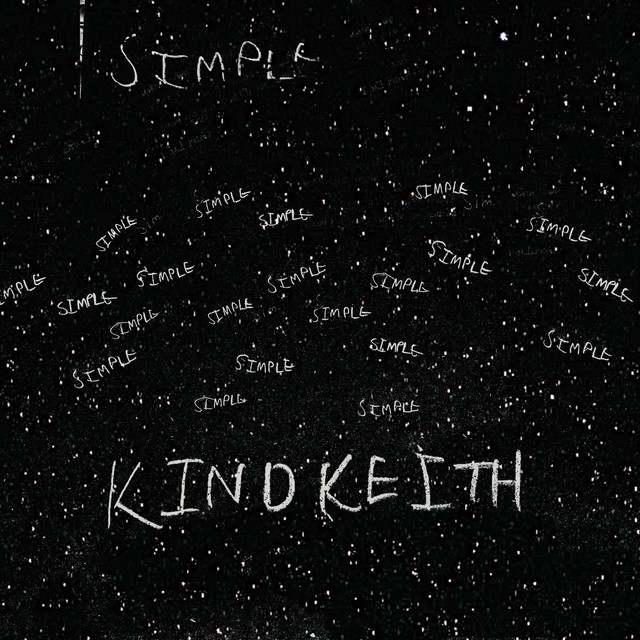 SIMPLE
SIMPLE
SIMPLE
SIMPLE
SIMPLE
SIMPLE
SIMPLE
SIMPLE
SIMPLE
SIMPLE
SIMPLE
IMPLE
SIMPLE
SIMPLE
SIMPLE
SIMPLE
SIMPLE
SIMPLE
SIMPLE
SIMPLE
SIMPLE
SIMPLE
KINDKEITH